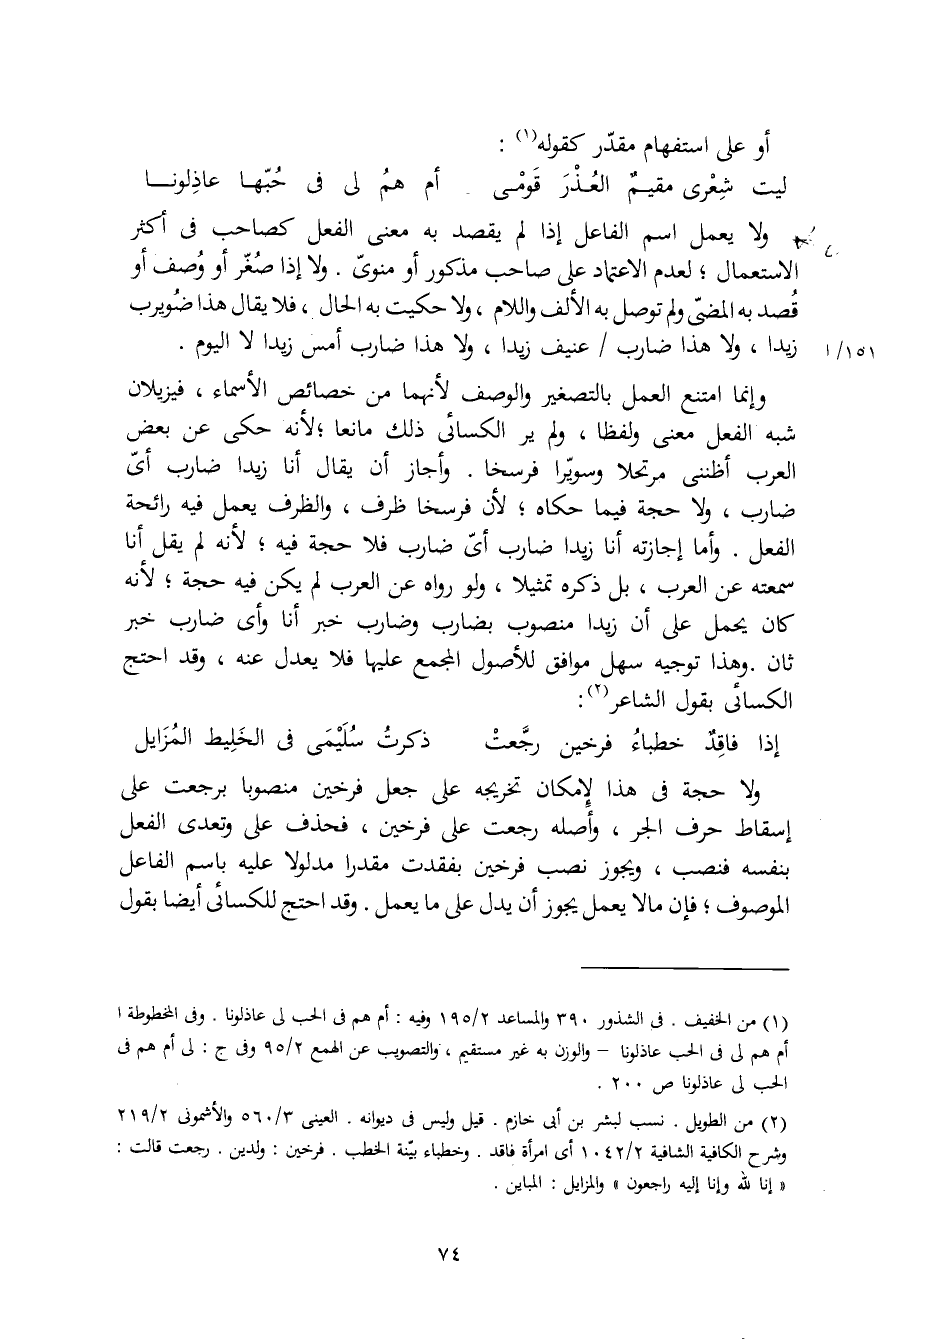 أو على استفهام مقدّر كقوله(١) :
ليت شِعْرى مقيـمٌ العُـذْرَ قَومْـى . أم همُ لى فى حُبّهـا عاذِلونـا
ولا يعمل اسم الفاعل إذا لم يقصد به معنى الفعل كصاحب فى أكثر
الاستعمال ؛ لعدم الاعتماد على صاحب مذكور أو منوىّ . ولا إذا صُغّر أو وُصف أو
قُصد به المضىّ ولم توصل به الألف واللام ، ولا حكيت به الحال ، فلا يقال هذا ضُويرب
زيدا ، ولا هذا ضارب / عنيف زيدا ، ولا هذا ضارب أمس زيدا لا اليوم . ١/١٥١
وإنما امتنع العمل بالتصغير والوصف لأنهما من خصائص الأسماء ، فيزيلان
شبه الفعل معنى ولفظا ، ولم ير الكسائى ذلك مانعا ؛لأنه حكى عن بعض
العرب أظننى مرتحلا وسويّرا فرسخا . وأجاز أن يقال أنا زيدا ضارب أىّ
ضارب ، ولا حجة فيما حكاه ؛ لأن فرسخا ظرف ، والظرف يعمل فيه رائحة
الفعل . وأما إجازته أنا زيدا ضارب أىّ ضارب فلا حجة فيه ؛ لأنه لم يقل أنا
سمعته عن العرب ، بل ذكره تمثيلا ، ولو رواه عن العرب لم يكن فيه حجة ؛ لأنه
كان يحمل على أن زيدا منصوب بضارب وضارب خبر أنا وأى ضارب خبر
ثان .وهذا توجيه سهل موافق للأصول المجمع عليها فلا يعدل عنه ، وقد احتج
الكسائى بقول الشاعر(٢):
إذا فاقِدٌ خطباءُ فرخين رجَّعتْ ذكرتُ سُلَيْمَى فى الخَلِيط المُزَايل
ولا حجة فى هذا لإمكان تخريجه على جعل فرخين منصوبا برجعت على
إسقاط حرف الجر ، وأصله رجعت على فرخين ، فحذف على وتعدى الفعل
بنفسه فنصب ، ويجوز نصب فرخين بفقدت مقدرا مدلولا عليه باسم الفاعل
الموصوف ؛ فإن مالا يعمل يجوز أن يدل على ما يعمل . وقد احتج للكسائى أيضا بقول
(١) من الخفيف . فى الشذور ٣٩٠ والمساعد ١٩٥/٢ وفيه : أم هم فى الحب لى عاذلونا . وفى المخطوطة ا
أم هم لى فى الحب عاذلونا – والوزن به غير مستقيم ، والتصويب عن الهمع ٩٥/٢ وفى ج : لى أم هم فى
الحب لى عاذلونا ص ٢٠٠ .
(٢) من الطويل . نسب لبشر بن أبى خازم . قيل وليس فى ديوانه . العينى ٥٦٠/٣ والأشمونى ٢١٩/٢
وشرح الكافية الشافية ١٠٤٢/٢ أى امرأة فاقد . وخطباء بيّنة الخطب . فرخين : ولدين . رجعت قالت :
« إنا لله وإنا إليه راجعون » والمزايل : المباين .
٧٤